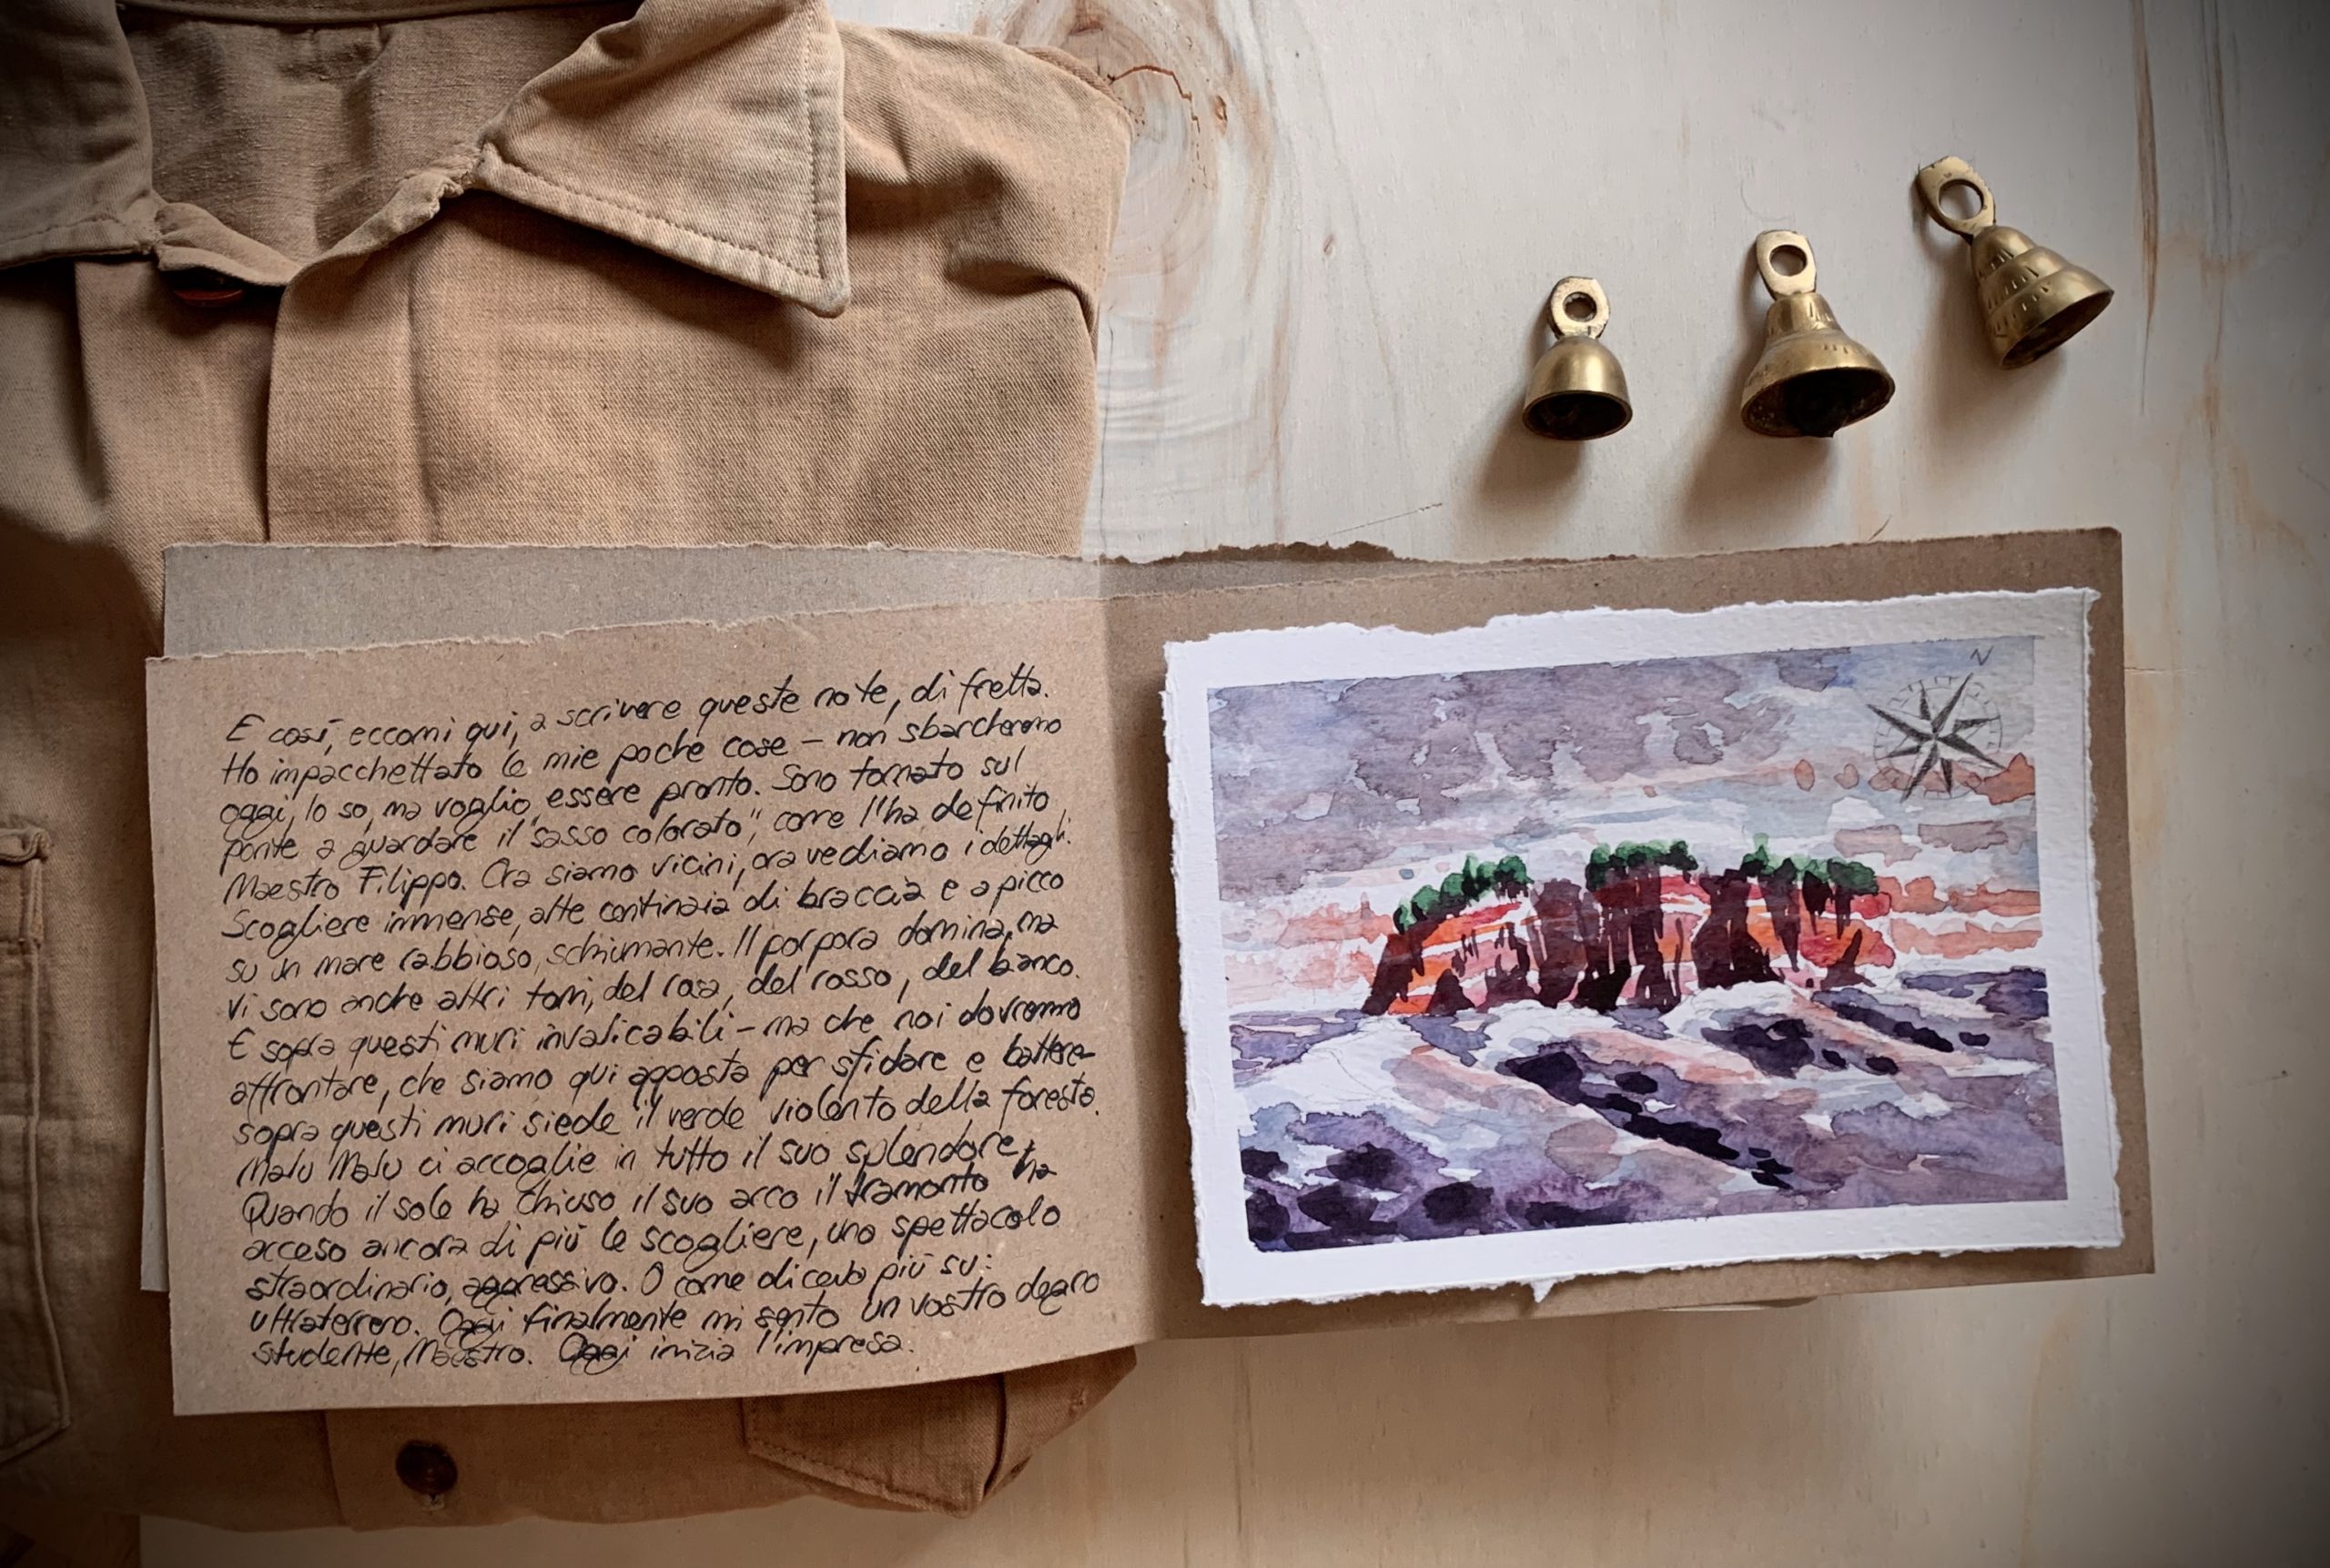 E così, eccomi qui, a scrivere queste note, di fretta.
Ho impacchettato le mie poche cose – non sbarcheremo
oggi, lo so, ma voglio essere pronto. Sono tornato sul
ponte a guardare il "sasso colorato", come l'ha definito
Maestro Filippo. Ora siamo vicini, ora vediamo i dettagli.
Scogliere immense, alte continaia di braccia e a picco
su un mare rabbioso, schiumante. Il porpora domina, ma
vi sono anche altri toni, del rosa, del rosso, del bianco.
E sopra questi muri invalicabili – ma che noi dovremo
affrontare, che siamo qui apposta per sfidare e battere –
sopra questi muri siede il verde violento della foresta.
Malu Malu ci accoglie in tutto il suo splendore.
Quando il sole ha chiuso il suo arco il tramonto ha
acceso ancora di più le scogliere, uno spettacolo
straordinario, aggressivo. O come dicevo più su:
ultraterreno. Oggi finalmente mi sento un vostro degno
studente, Maestro. Oggi inizia l'impresa.
N